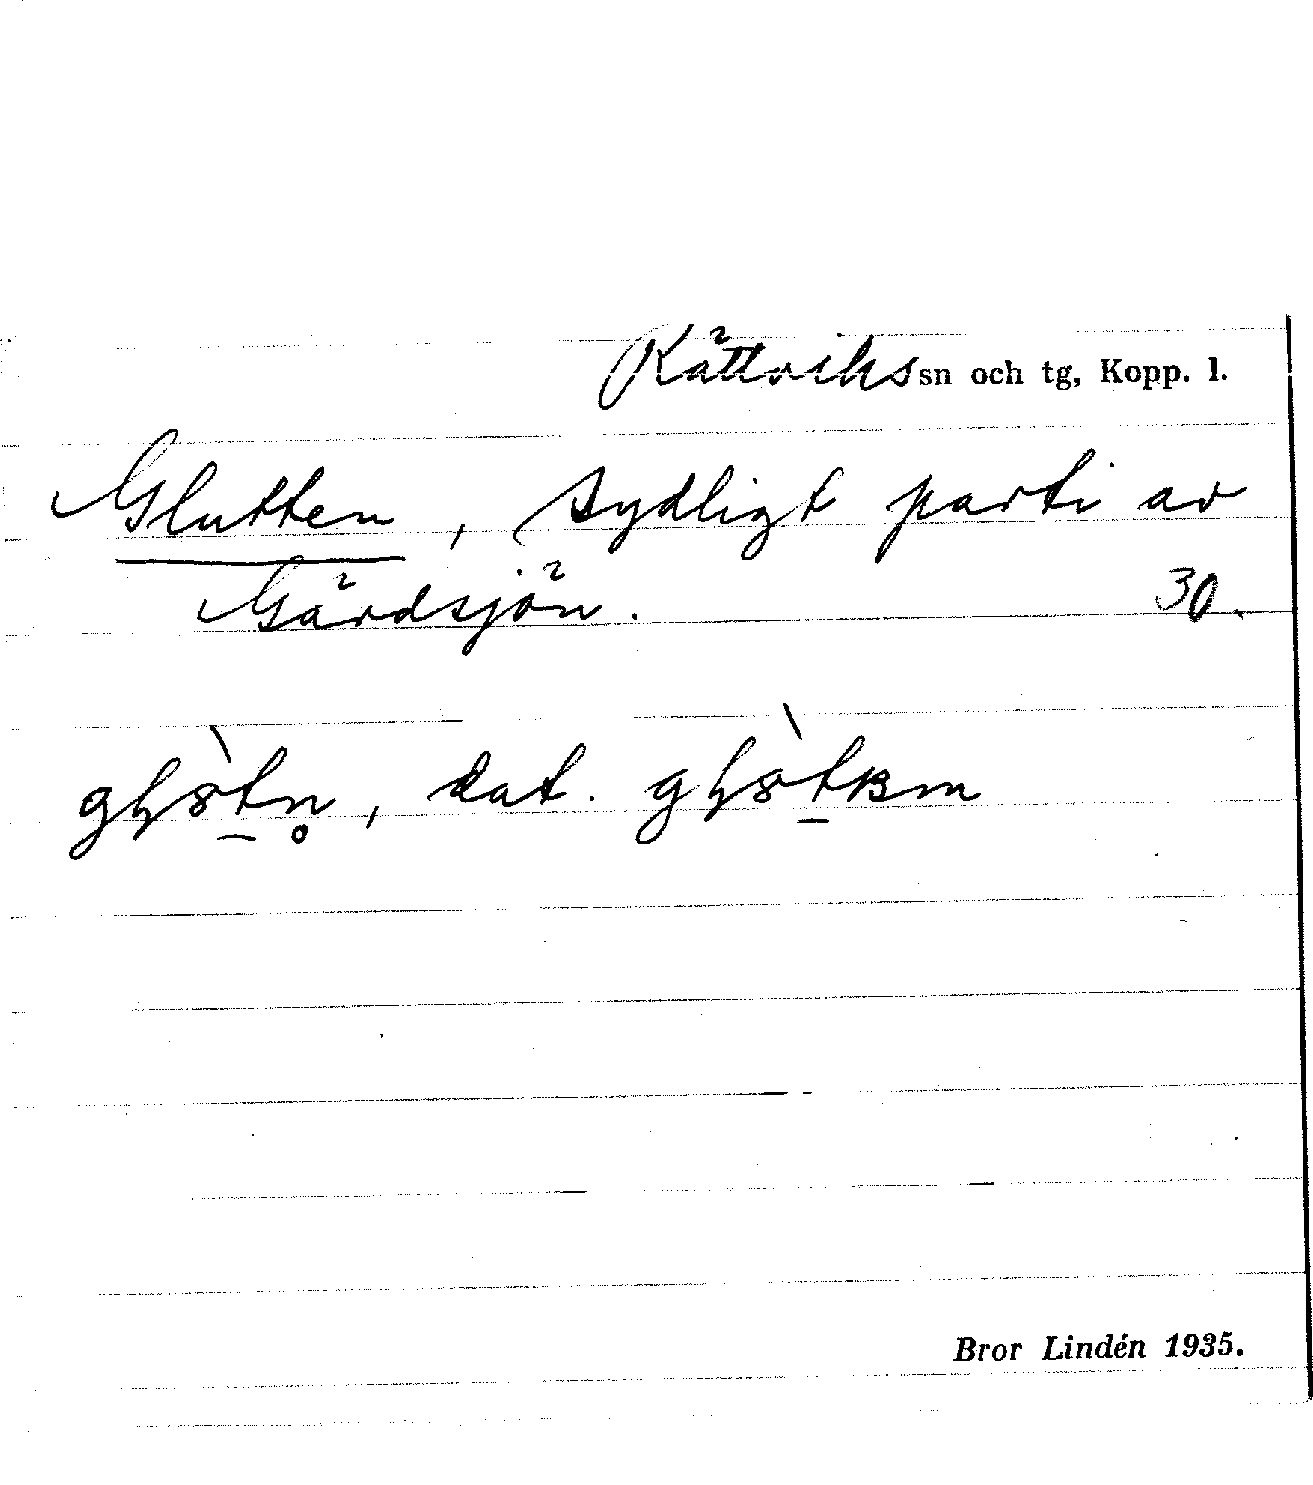 Rättviks sn och tg, Kopp. l.
Glutten, sydligt parti av
Gärdsjön. 30.
dat.
Bror Lindén 1935.